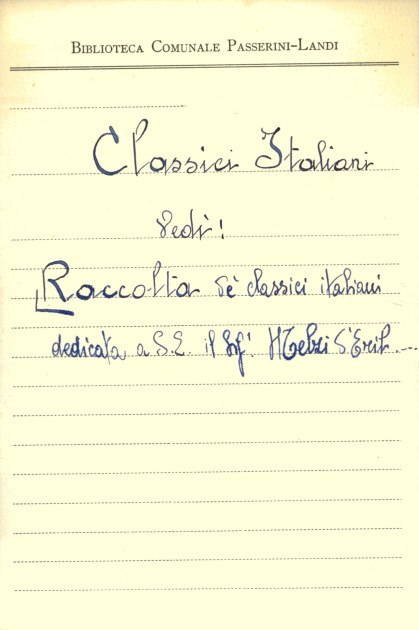 BIBLIOTECA COMUNALE PASSERINI-LANDI
Classici Italiani
Vedi!
Raccolta de' classici italiani
dedicata a S.E. il Sig! Melzi d'Eril...